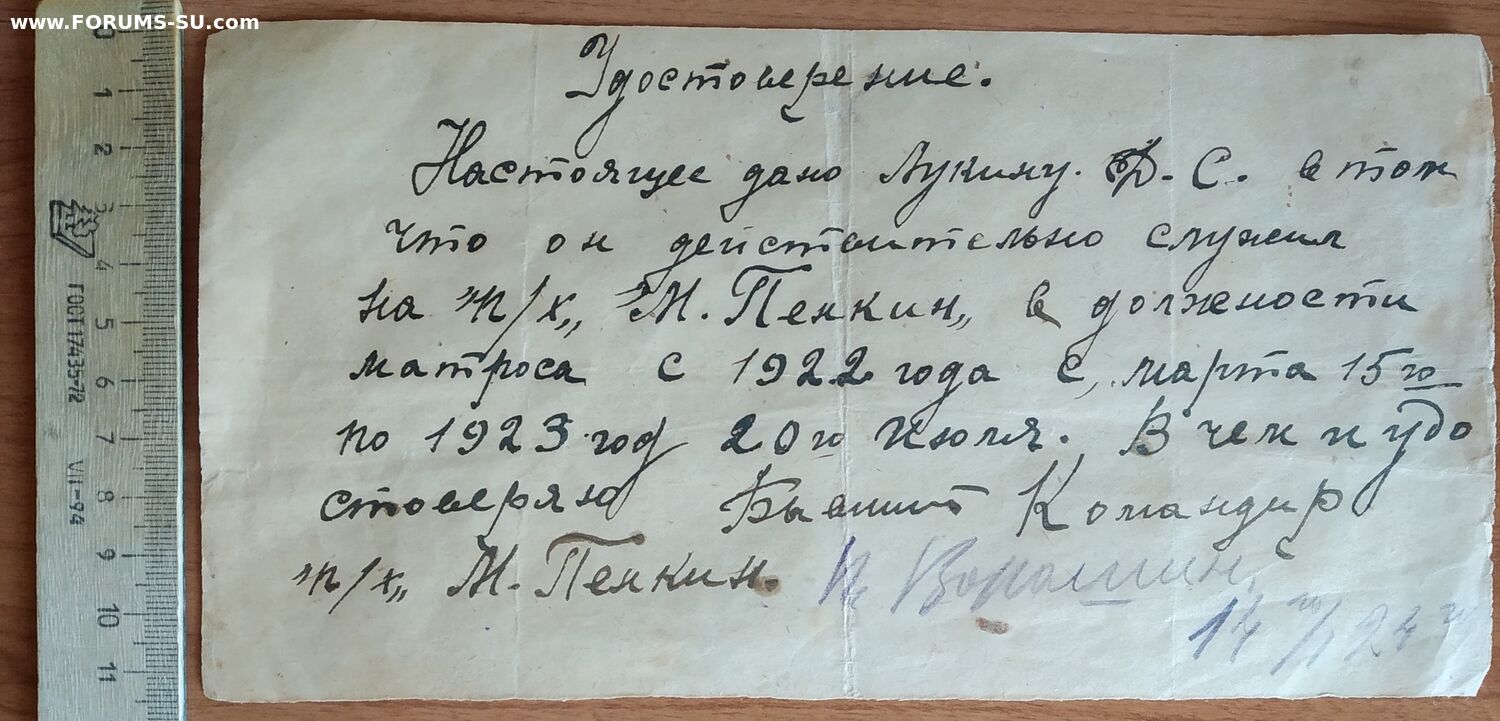 www.FORUMS-SU.com
Удостоверение.
Настоящее дано Лукину. Ф. С. в том
что он действительно служил
на т/х „М. Пенкин„ в должности
матроса с 1922 года с, марта 15го
по 1923 год 20го июля. В чем и удо
стоверяю Бывший Командир
т/х„ М. Пенкин.
0
1
2
3
4
5
6
7
8
9
10
11
ГОСТ 17435-72 VII-94